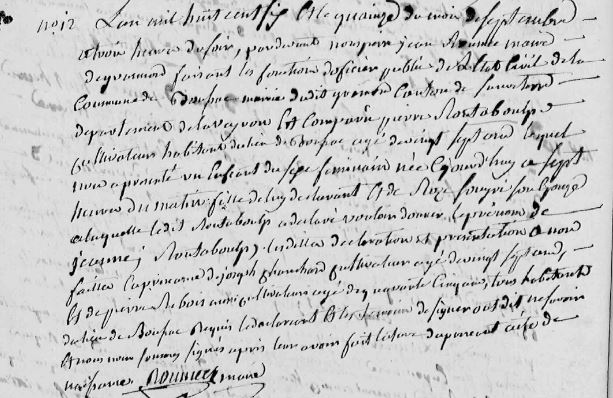 no 12 L'an mil huit cent six et le quinze du mois de septembre
a trois heures du soir, pardevant nous pierre jean Rounier maire
de gramond faisant les fonctions d'officier public de l'état Civil de la
Commune de Boussac mairie dudit gramond Canton de Sauveterre
departement de laveyron Est Comparu pierre Boutaboulp
Cultivateur habitant du lieu de Boussac agé de vingt sept ans lequel
nous a présenté un Enfant du sexe feminain née aujourd'huy a sept
heures du matin fille de luy declarant Et de Roze son Epouze
a laquelle ledit Routaboulp a declaré vouloir donner le prénom de
jeanne Routaboulp, lesdittes declaration et présentation a nous
faittes En présence de joseph Cultivateur agé de vingt sept ans,
Et de pierre Rebois aussi Cultivateur agé de quarante Cinq ans, tous habitants
du lieu de Boussac Requis le declarant Et les temoins de signer ont dit ne savoir
Et nous nous sommes signés apres leur avoir fait lecture du present acte de
naissance Rounier maire